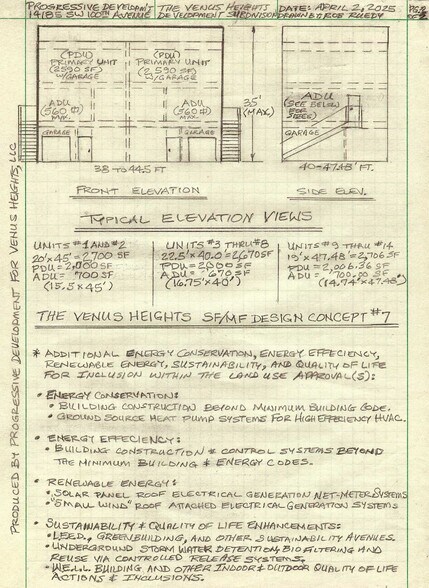 PROGRESSIVE DEVELOPM'T THE VENUS HEIGHTS DATE: APRIL 2, 2025
14185 SW 100TH AVENUE DEVELOPMENT SUBDIVISION DRAWN BY ROB RUEDY
(PDU) (PDU)
PRIMARY UNIT PRIMARY UNIT
(2590 SF) (2590 SF)
W/GARAGE W/GARAGE
ADU ADU
(560 ⌀) (560 ⌀)
MAX. MAX.
GARAGE GARAGE
35'
(MAX.)
ADU
(SEE BELOW
FOR
SIZES)
GARAGE
38 TO 44.5 FT 40-47.48' FT.
FRONT ELEVATION SIDE ELEV.
TYPICAL ELEVATION VIEWS
UNITS #1 AND #2
20' x 45' = 2,700 SF
PDU = 2,000 SF
ADU = 700 SF
(15.5 x 45')
UNITS #3 THRU #8
22.5' x 40.0' = 2,670 SF
PDU = 2,000 SF
ADU = 670 SF
(16.75' x 40')
UNITS #9 THRU #14
19' x 47.48' = 2,706 SF
PDU = 2,006.36 SF
ADU = 700.00 SF
(14.74' x 47.48')
THE VENUS HEIGHTS SF/MF DESIGN CONCEPT #7
* ADDITIONAL ENERGY CONSERVATION, ENERGY EFFECIENCY,
RENEWABLE ENERGY, SUSTAINABILITY, AND QUALITY OF LIFE
FOR INCLUSION WITHIN THE LAND USE APPROVAL(S):
• ENERGY CONSERVATION:
• BUILDING CONSTRUCTION BEYOND MINIMUM BUILDING CODE.
• GROUND SOURCE HEAT PUMP SYSTEMS FOR HIGH EFFICIENCY HVAC.
• ENERGY EFFECIENCY:
• BUILDING CONSTRUCTION & CONTROL SYSTEMS BEYOND
THE MINIMUM BUILDING & ENERGY CODES.
• RENEWABLE ENERGY:
• SOLAR PANEL ROOF ELECTRICAL GENERATION NET-METER SYSTEMS
• "SMALL WIND" ROOF ATTACHED ELECTRICAL GENERATION SYSTEMS
• SUSTAINABILITY & QUALITY OF LIFE ENHANCEMENTS:
• L.E.E.D., GREENBUILDING, AND OTHER SUSTAINABILITY AVENUES.
• UNDERGROUND STORM WATER DETENTION, BIO FILTERING AND
REUSE VIA CONTROLLED RELEASE SYSTEMS.
• W.E.L.L. BUILDING AND OTHER INDOOR & OUTDOOR QUALITY OF LIFE
ACTIONS & INCLUSIONS.
PRODUCED BY PROGRESSIVE DEVELOPMENT FOR VENUS HEIGHTS, LLC